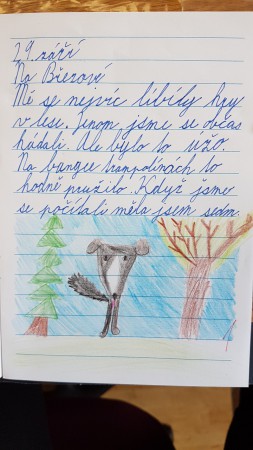 29. září
Na Březové
Mě se nejvíc líbily hry
v lese. Jenom jsme se občas
hádali. Ale bylo to úžo.
Na bangee trampolínách to
hodně pružilo. Když jsme
se počítali měla jsem sedm.